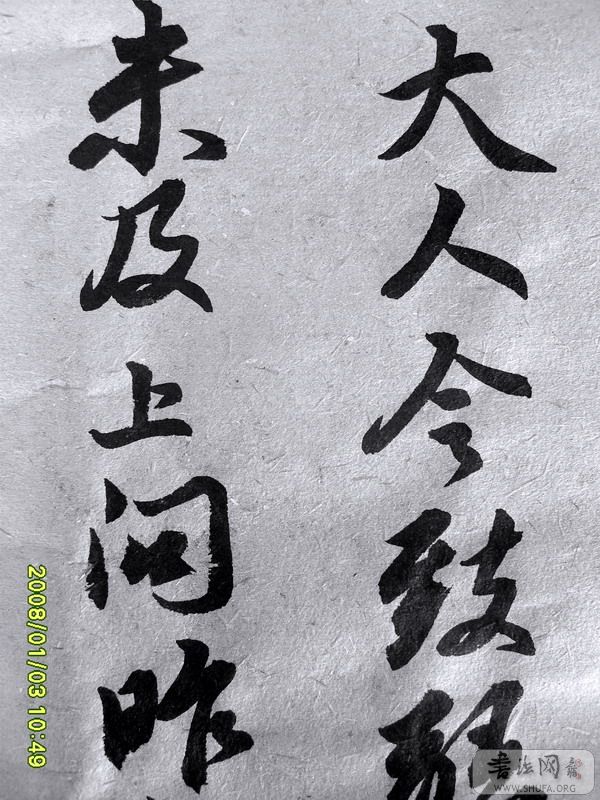 大人今致
未及上问昨
2008/01/03 10:49
书法网
WWW.SHUFA.ORG